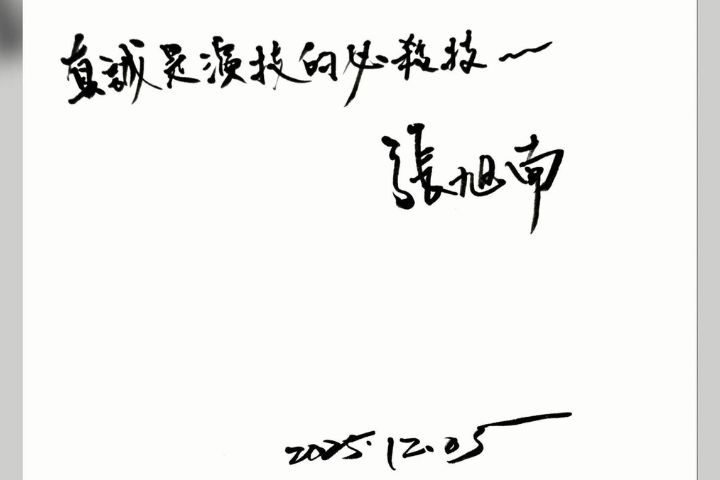 真誠是演技的必殺技～
張旭南
2025.12.05